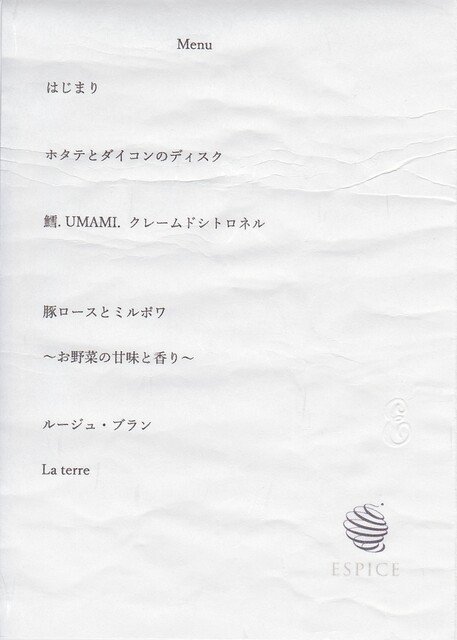 Menu
はじまり
ホタテとダイコンのディスク
鱈. UMAMI. クレームドシトロネル
豚ロースとミルポワ
～お野菜の甘味と香り～
ルージュ・ブラン
La terre
ESPICE